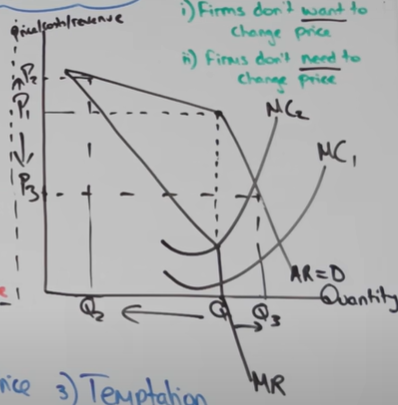 i) Firms don't want to
change price
ii) Firms don't need to
change price
price/costs/revenue
P2
P1
P3
MC2
MC1
AR=D
Quantity
Q2
Q
Q3
MR
3) Temptation